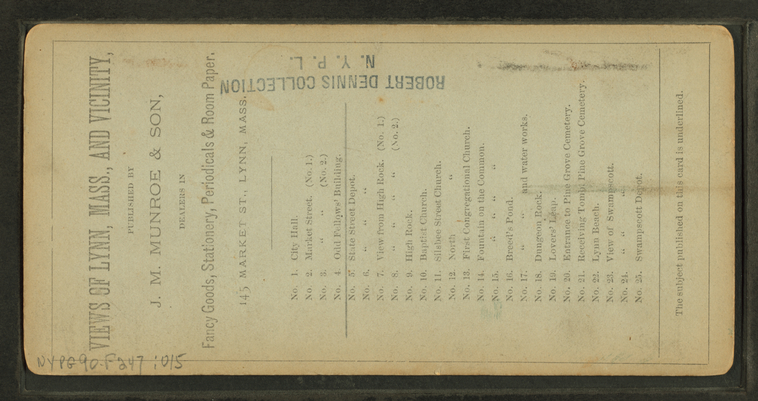 VIEWS OF LYNN, MASS., AND VICINITY,
PUBLISHED BY
J. M. MUNROE & SON,
DEALERS IN
Fancy Goods, Stationery, Periodicals & Room Paper.
145 MARKET ST., LYNN, MASS.
No. 1. City Hall.
No. 2. Market Street. (No. 1.)
No. 3. " " (No. 2.)
No. 4. Odd Fellows' Building.
No. 5. State Street Depot.
No. 6. " " "
No. 7. View from High Rock. (No. 1.)
No. 8. " " " " (No. 2.)
No. 9. High Rock.
No. 10. Baptist Church.
No. 11. Silsbee Street Church.
No. 12. North "
No. 13. First Congregational Church.
No. 14. Fountain on the Common.
No. 15. " " " "
No. 16. Breed's Pond.
No. 17. " " and water works.
No. 18. Dungeon Rock.
No. 19. Lovers' Leap.
No. 20. Entrance to Pine Grove Cemetery.
No. 21. Receiving Tomb, Pine Grove Cemetery.
No. 22. Lynn Beach.
No. 23. View of Swampscott.
No. 24. " " "
No. 25. Swampscott Depot.
The subject published on this card is underlined.
ROBERT DENNIS COLLECTION
N. Y. P. L.
NYPG90-F247 :015